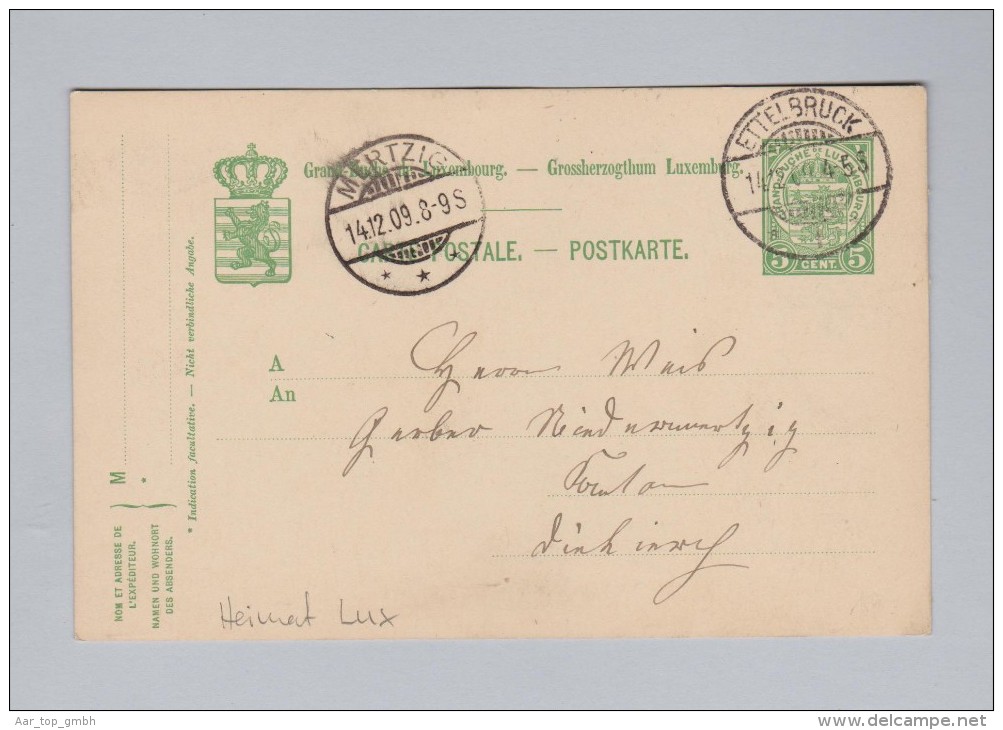 Grand-Duché de Luxembourg. — Grossherzogthum Luxemburg.
CARTE POSTALE. — POSTKARTE.
MERTZIG
14.12.09.8-9S
ETTELBRUCK
GRAND-DUCHÉ DE LUXEMBOURG
5 CENT. 5
A
An
Herrn Weis
Gerber Niedermertzig
Kanton
Diekirch
M
*
NOM ET ADRESSE DE
L'EXPÉDITEUR.
NAMEN UND WOHNORT
DES ABSENDERS.
* Indication facultative. — Nicht verbindliche Angabe.
Heimat Lux
Aar_top_gmbh
delcampe.net